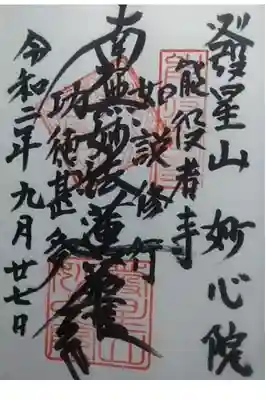 發星山 妙心院
能役者寺
如説修行
南無妙法蓮華經
功徳甚多
令和二年九月廿七日